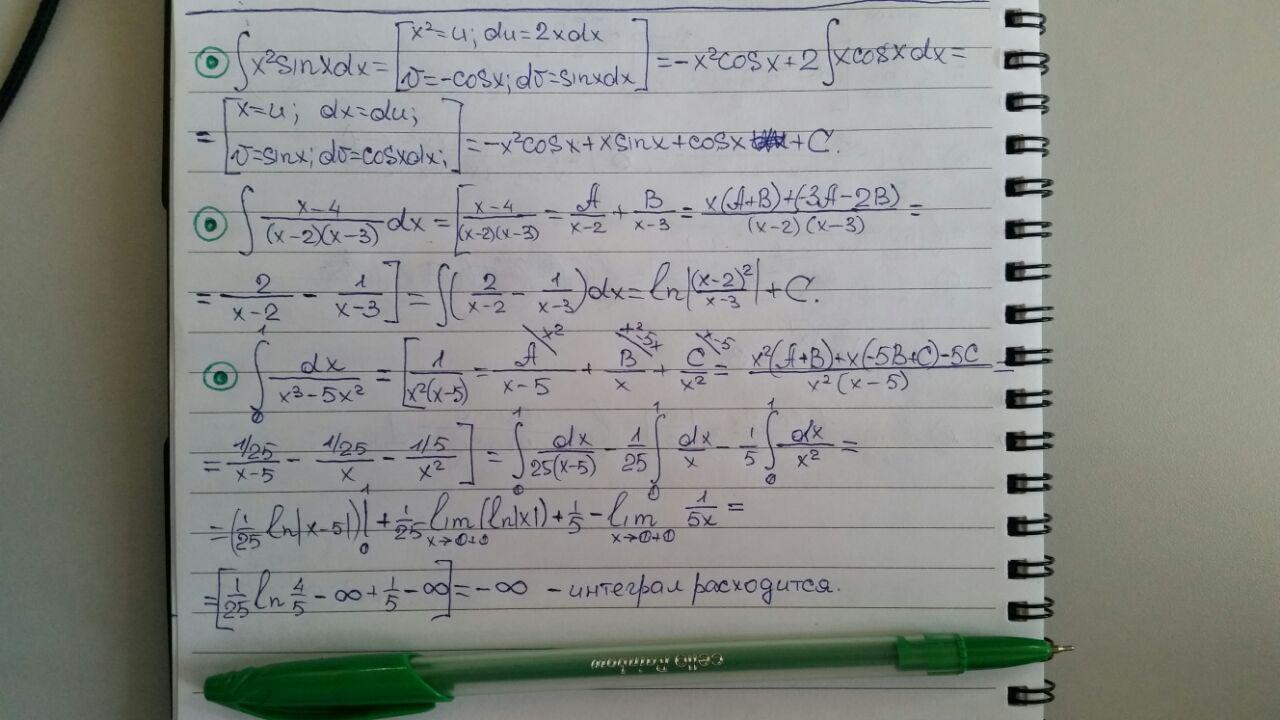 ∫x²sinxdx = [x²=u; du=2xdx
v=-cosx; dv=sinxdx] = -x²cosx+2∫xcosxdx=
= [x=u; dx=du;
v=sinx; dv=cosxdx;] = -x²cosx+xsinx+cosx +C.
∫ (x-4)/((x-2)(x-3)) dx = [(x-4)/((x-2)(x-3)) = A/(x-2) + B/(x-3) = (x(A+B)+(-3A-2B))/((x-2)(x-3)) =
= 2/(x-2) - 1/(x-3)] = ∫(2/(x-2) - 1/(x-3))dx = ln|(x-2)²/(x-3)| + C.
∫₀¹ dx/(x³-5x²) = [1/(x²(x-5)) = A/(x-5) + B/x + C/x² = (x²(A+B)+x(-5B+C)-5C)/(x²(x-5)) =
= (1/25)/(x-5) - (1/25)/x - (1/5)/x²] = ∫₀¹ dx/(25(x-5)) - 1/25 ∫₀¹ dx/x - 1/5 ∫₀¹ dx/x² =
= (1/25 ln|x-5|)|₀¹ + 1/25 lim x→0+0 (ln|x|) + 1/5 - lim x→0+0 1/5x =
= [1/25 ln 4/5 - ∞ + 1/5 - ∞] = -∞ - интеграл расходится.
cello